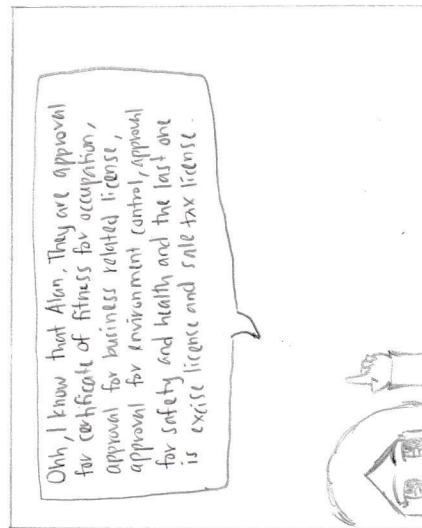 Ohh, I know that Alan, They are approval
for certificate of fitness for occupation,
approval for business related license,
approval for environment control, approval
for safety and health and the last one
is excise license and sale tax license.